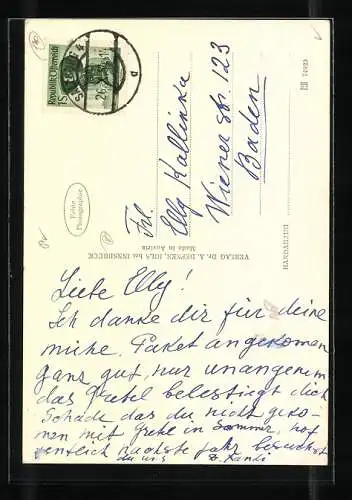 Republik Österreich
15
Frl.
Elly Kallinka
Wiener Str. 123
Baden
Echte
Photographie
VERLAG Dr. A. DEFNER, IGLS bei INNSBRUCK
Made in Austria
HANDABZUG
Liebe Elly!
Ich danke dir für deine
mühe, Paket angekomen
ganz gut, nur unangenem
das Gretel belestiegt dich
Schade das du nicht geko-
men mit Gretl in Sommer, hof
fentlich nächste Jahr besuchst
du uns